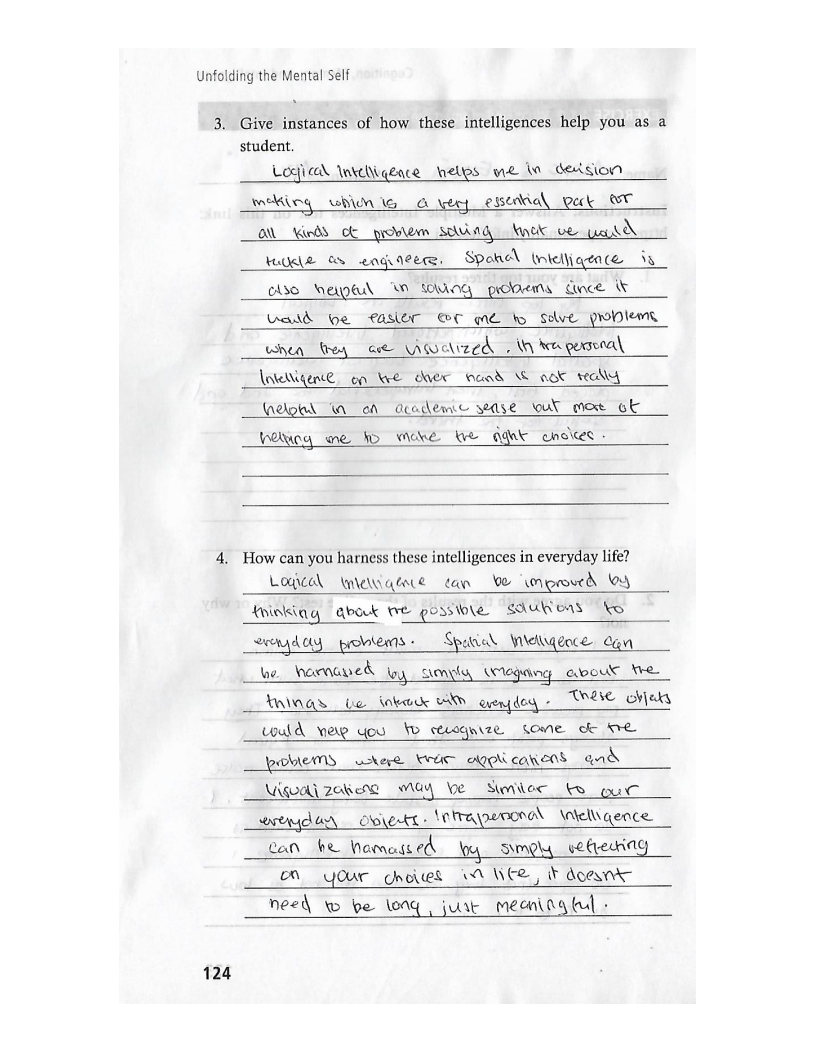 Unfolding the Mental Self
3. Give instances of how these intelligences help you as a
student.
Logical Intelligence helps me in decision
making which is a very essential part for
all kinds of problem solving that we would
tackle as engineers. Spatial Intelligence is
also helpful in solving problems since it
would be easier for me to solve problems
when they are visualized. Intrapersonal
Intelligence on the other hand is not really
helpful in an academic sense but more of
helping me to make the right choices.
4. How can you harness these intelligences in everyday life?
Logical Intelligence can be improved by
thinking about the possible solutions to
everyday problems. Spatial Intelligence can
be harnassed by simply imagining about the
things we interact with everyday. These objects
could help you to recognize some of the
problems where their applications and
visualizations may be similar to our
everyday objects. Intrapersonal Intelligence
can be harnassed by simply reflecting
on your choices in life, it doesnt
need to be long, just meaningful.
124